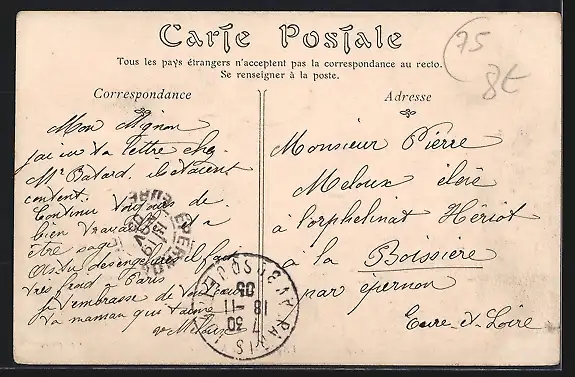 Carte Postale
75
8€
Tous les pays étrangers n'acceptent pas la correspondance au recto.
Se renseigner à la poste.
Correspondance
Adresse
Mon Mignon
jai vu ta lettre chez
Mr Batard. ils étaient
content.
Continu toujours de
bien travailler
être sage
As tu des engelures il fait
tres froid a Paris
je t'embrasse de tout coeur
ta maman qui t'aime
Meloux
Monsieur Pierre
Meloux élève
à l'orphelinat Hériot
à la Boissière
par épernon
Eure-et-Loire
EPERNON
EURE
PARIS
7 30
18 -11
05